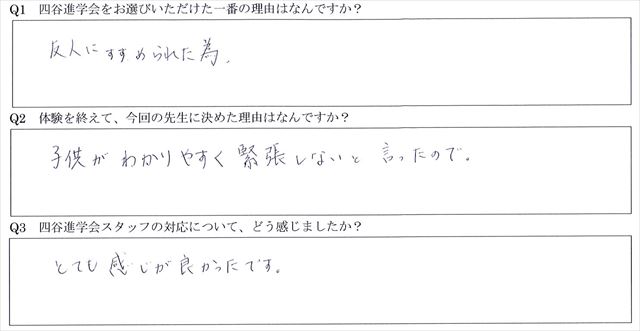 Q1 四谷進学会をお選びいただけた一番の理由はなんですか？
友人にすすめられた為。
Q2 体験を終えて、今回の先生に決めた理由はなんですか？
子供がわかりやすく緊張しないと言ったので。
Q3 四谷進学会スタッフの対応について、どう感じましたか？
とても感じが良かったです。